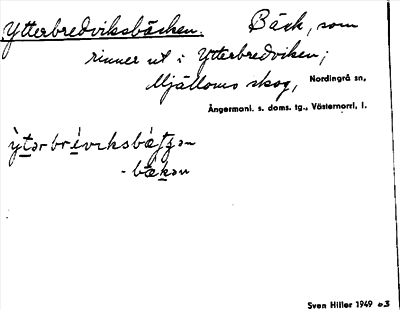 Ytterbredviksbäcken. Bäck, som
rinner ut i Ytterbredviken;
Mjälloms skog, Nordingrå sn,
Ångermanl. s. doms. tg., Västernorrl. l.
-bækən
Sven Hiller 1949